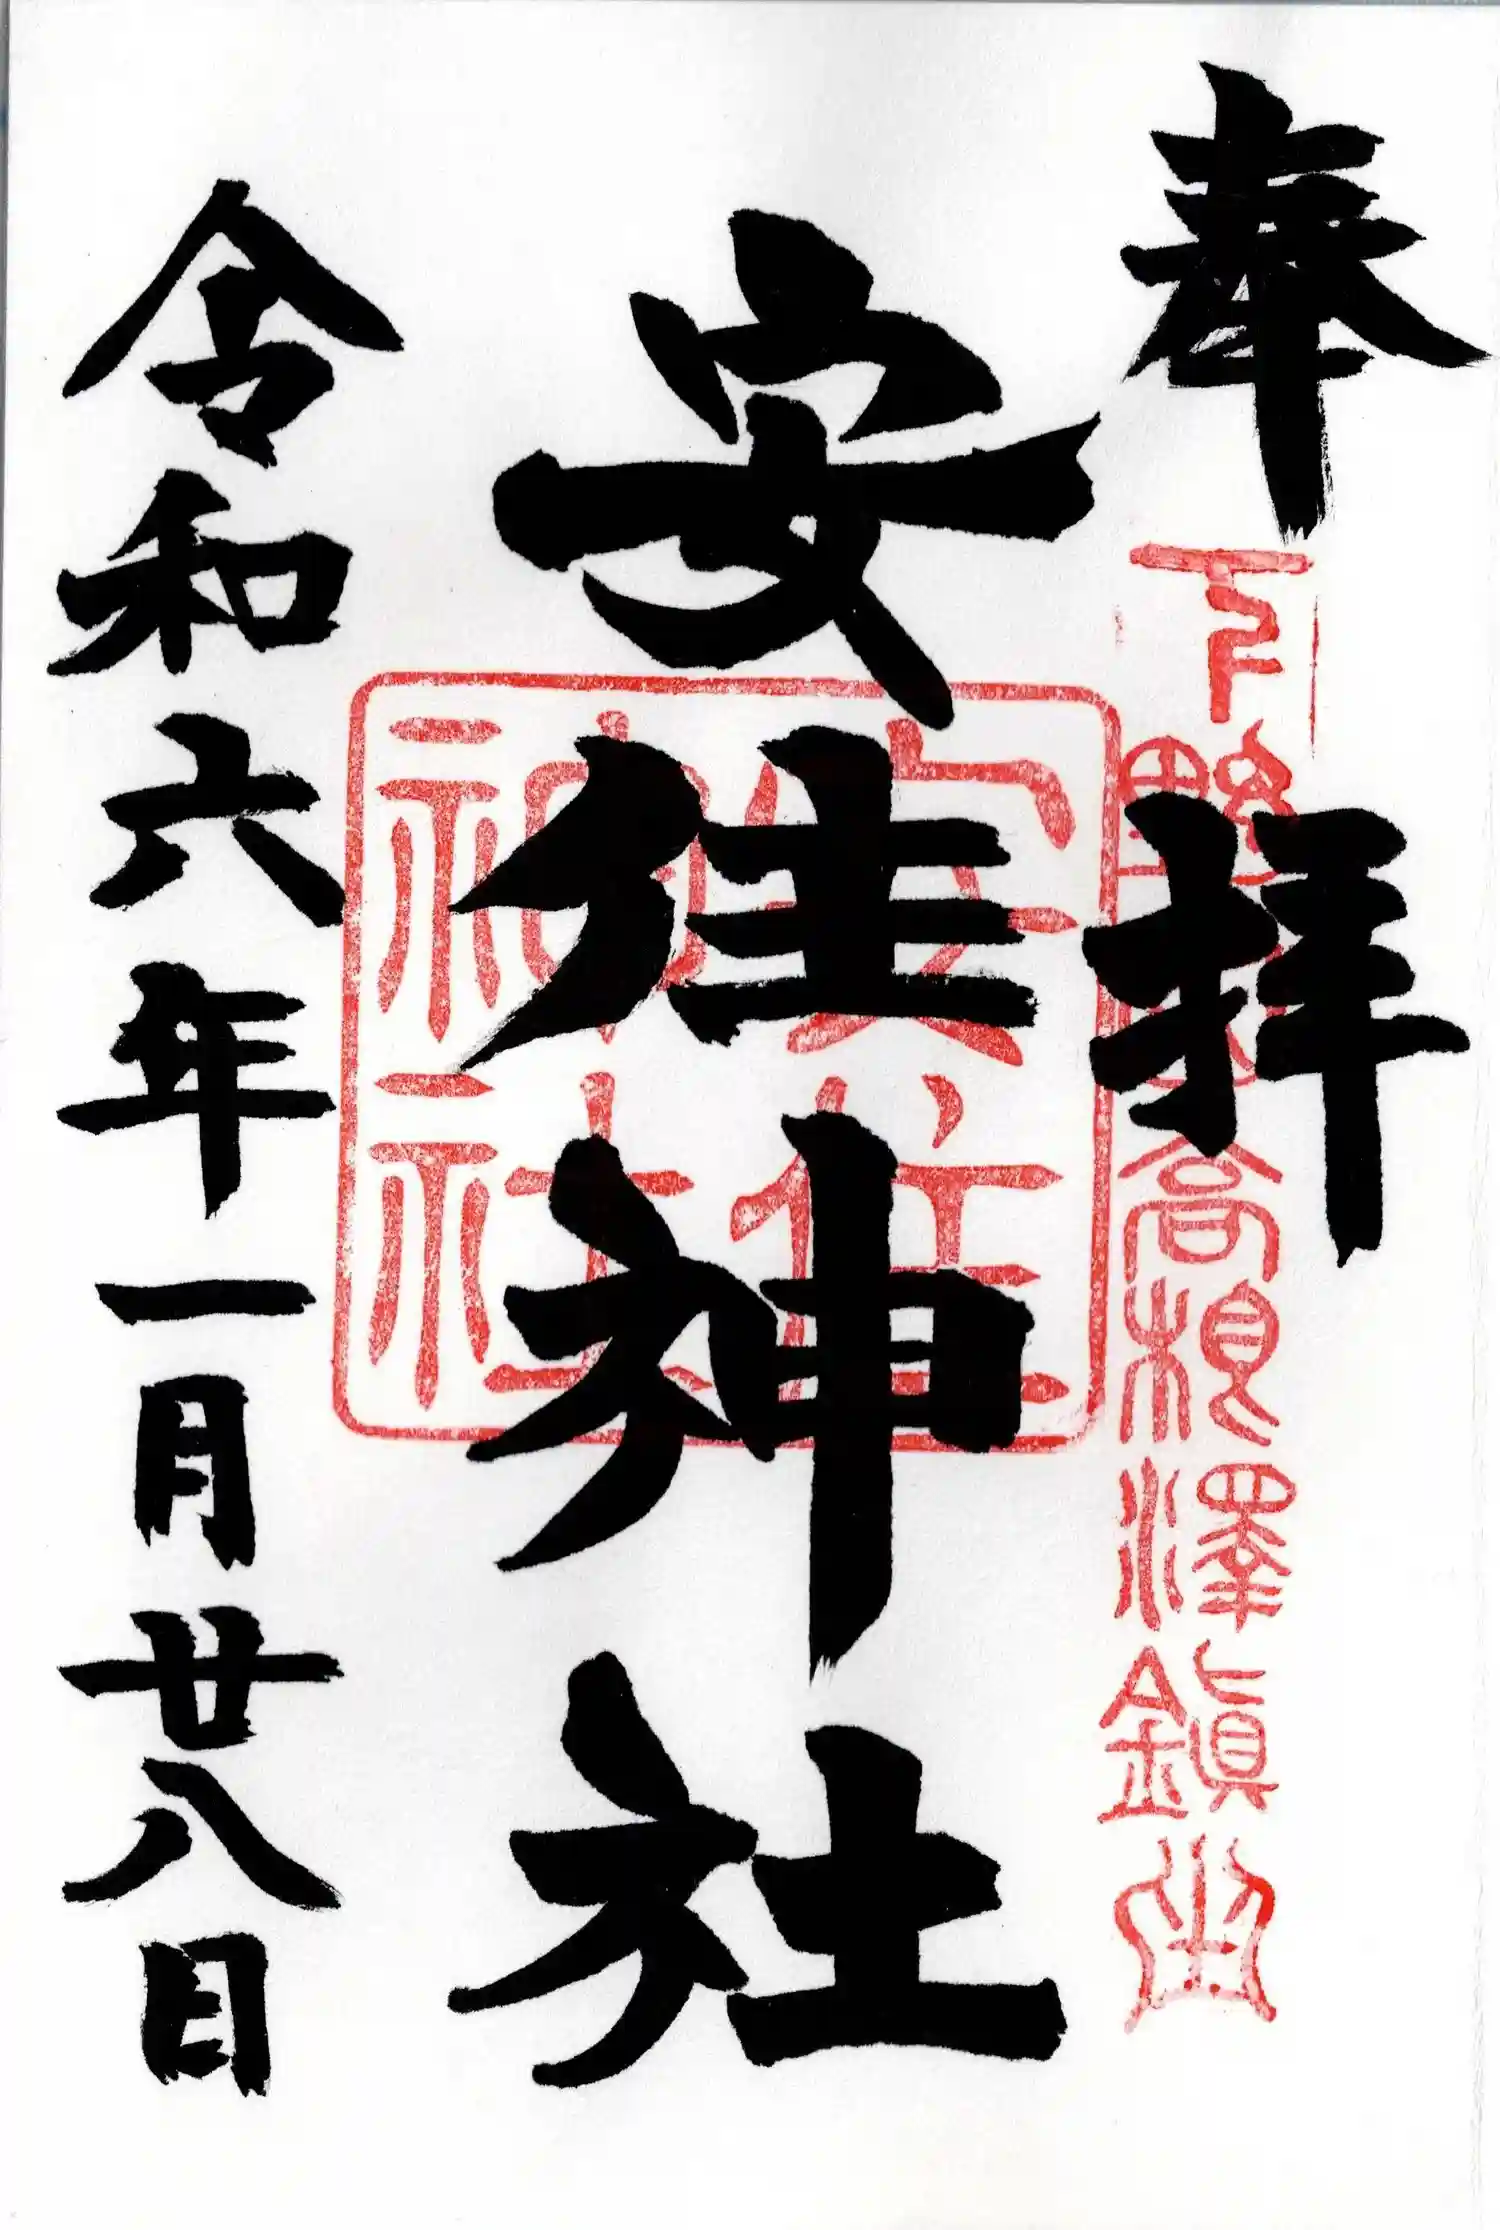 奉拝
下野
高根澤鎮座
安住神社
安住
神社
令和六年一月廿八日